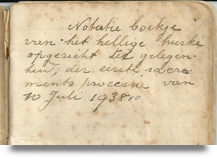 Notatie boekje
van het heilige huske
opgericht ter gelegen-
heid, der eerste sacra
ments processie van
10 Juli 1938